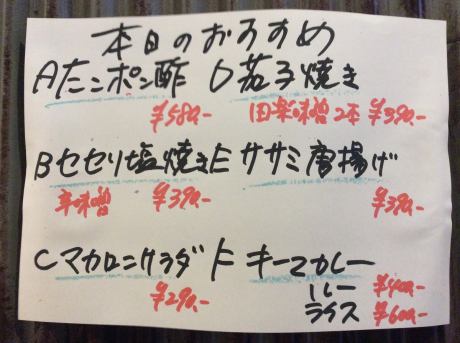 本日のおすすめ
Aたこポン酢 D茄子焼き
¥580- 田楽味噌2本 ¥390-
Bセセリ塩焼き E ササミ唐揚げ
辛味噌 ¥390- ¥390-
Cマカロニサラダ F キーマカレー
¥290- ルー ¥400-
ライス ¥600-